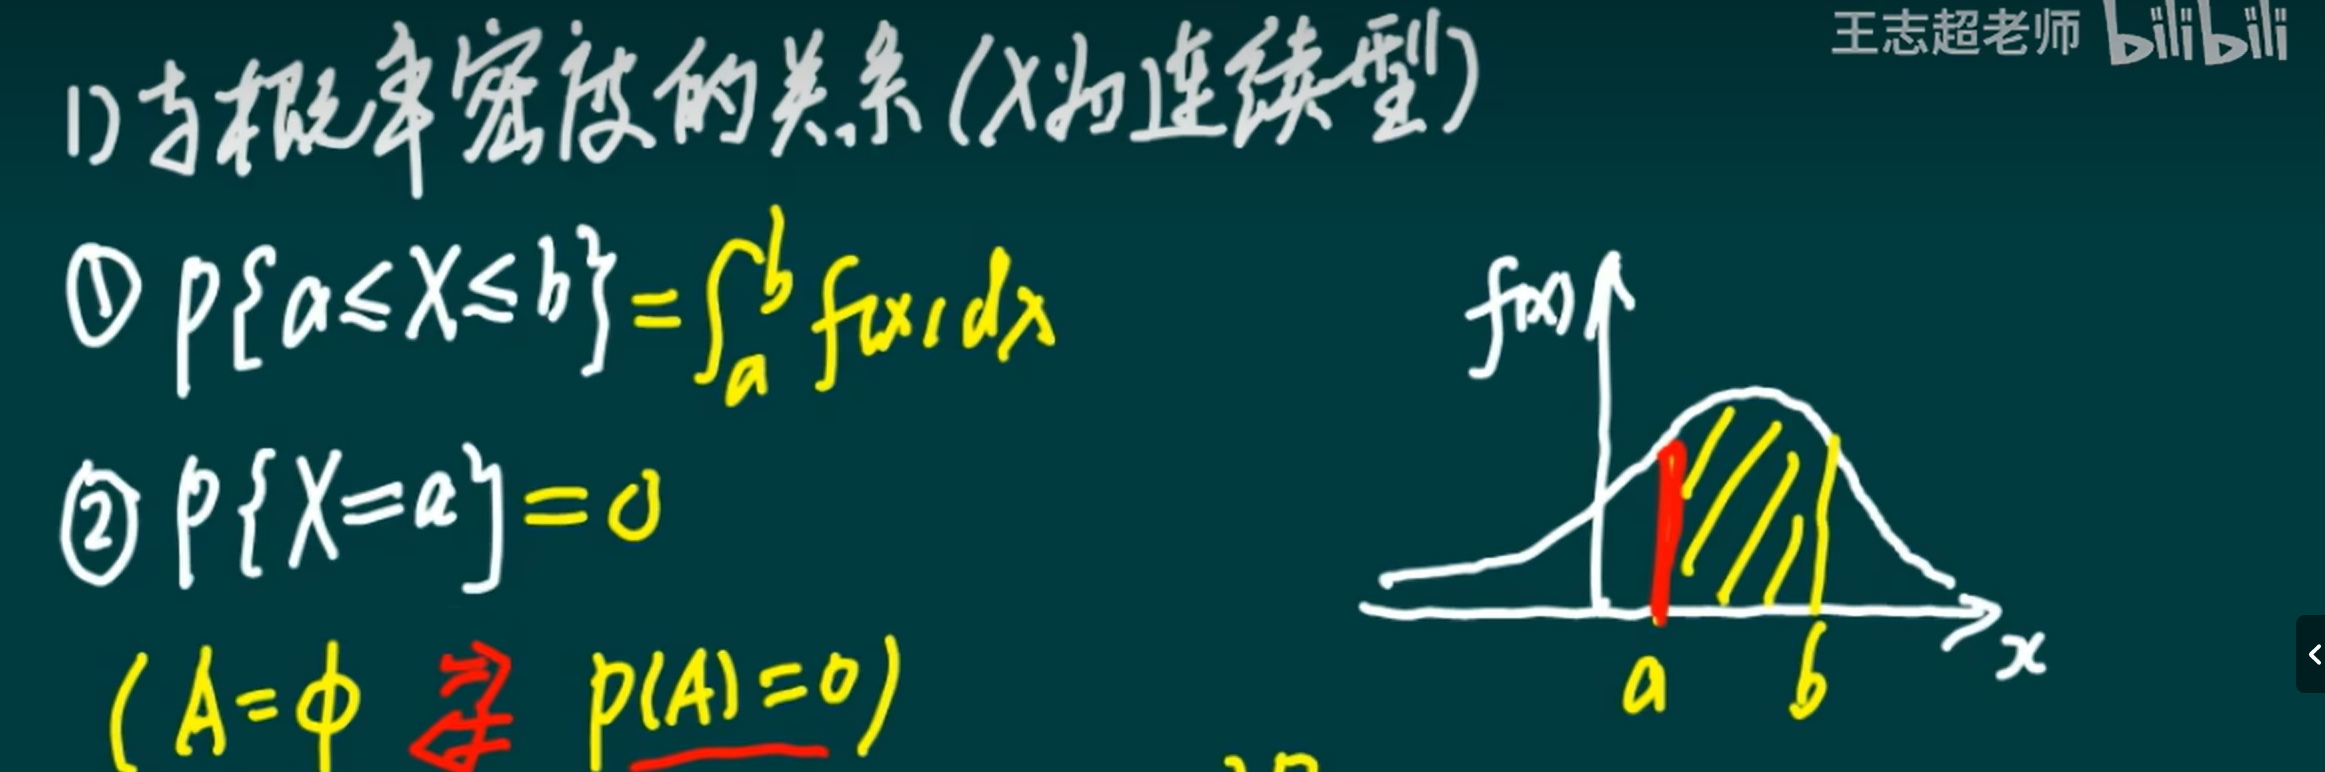 王志超老师 bilibili
1) 与概率密度的关系(X为连续型)
① P{a≤X≤b}=∫_a^b f(x)dx
② P{X=a}=0
(A=φ ⇄ P(A)=0)
f(x)
a b x